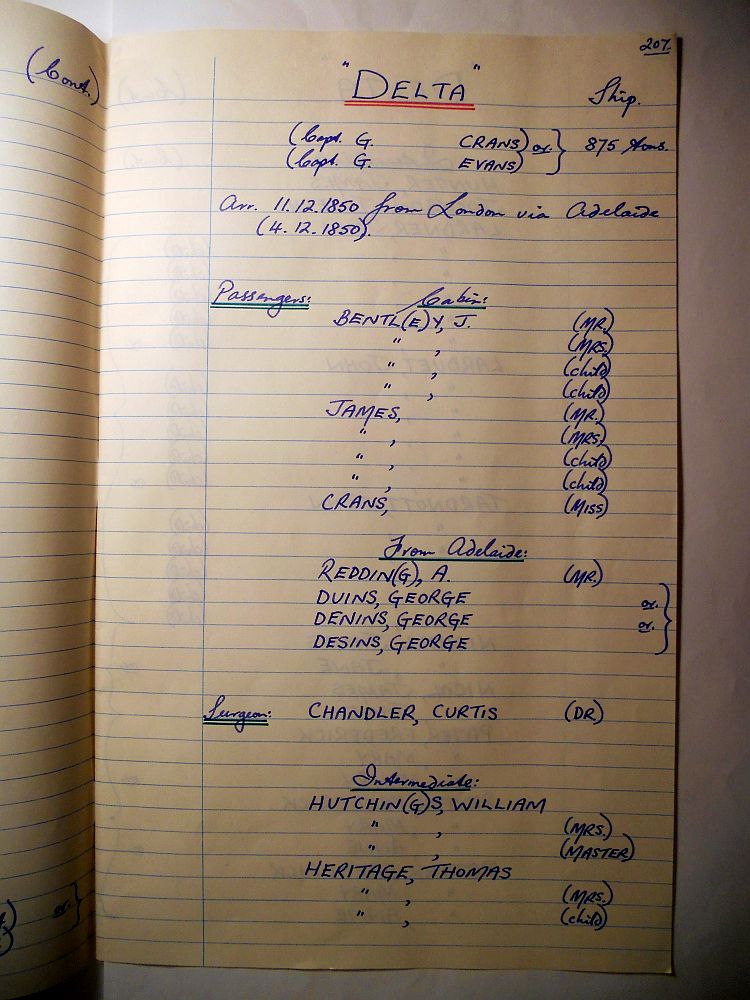 207.
(Cont.)
"DELTA" Ship.
(Capt. G. CRANS) or. } 875 tons.
(Capt. G. EVANS)
Arr. 11.12.1850 from London via Adelaide
(4.12.1850).
Passengers: Cabin:
BENTL(E)Y, J. (MR.)
" , (MRS.)
" , (child)
" , (child)
JAMES, (MR.)
" , (MRS.)
" , (child)
" , (child)
CRANS, (MISS)
From Adelaide:
REDDIN(G), A. (MR.)
DUINS, GEORGE or.
DENINS, GEORGE or. }
DESINS, GEORGE
Surgeon: CHANDLER, CURTIS (DR)
Intermediate:
HUTCHIN(G)S, WILLIAM
" , (MRS.)
" , (MASTER)
HERITAGE, THOMAS
" , (MRS.)
" , (child)
or. }